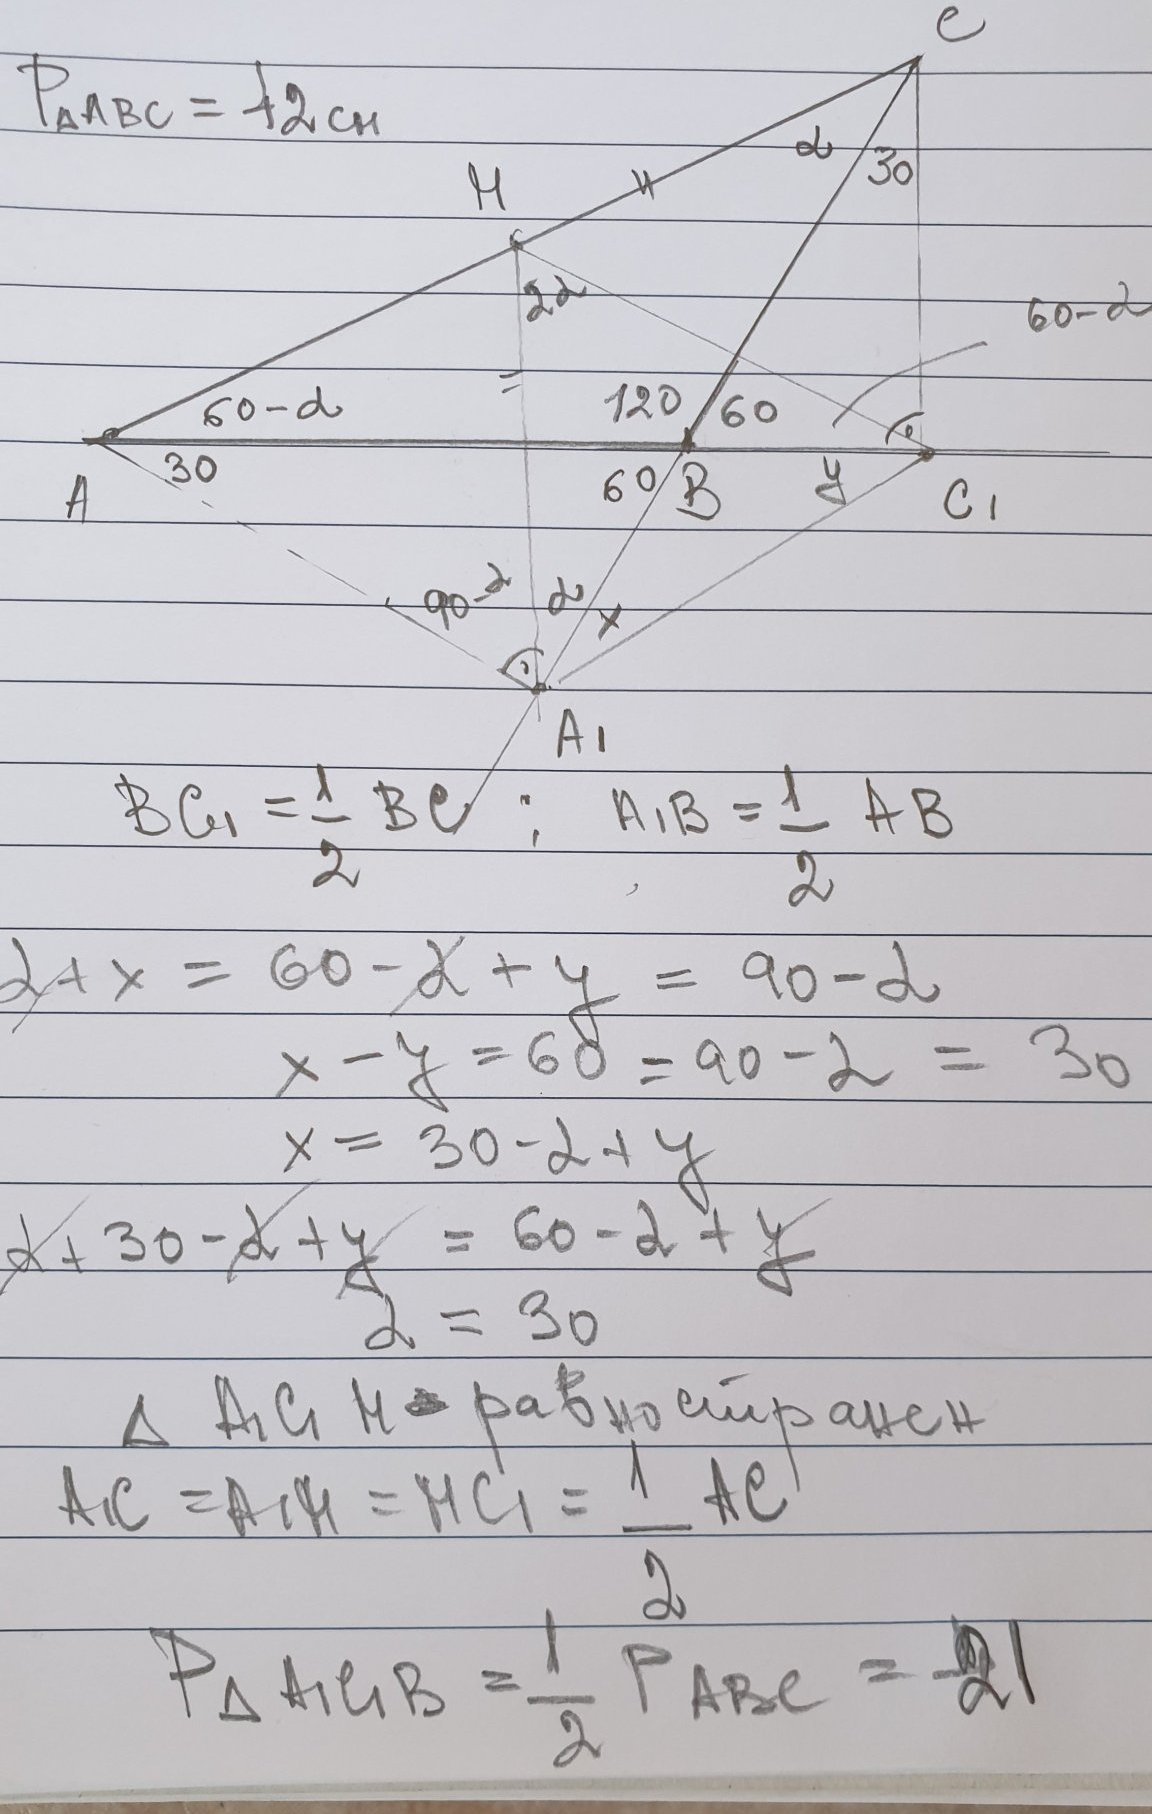 C
P△ABC = 42 см
M
α
30
2α
60-α
60-α
120
60
30
A
60
B
y
C1
90-α
α
x
A1
BC1 = 1/2 BC ; A1B = 1/2 AB
α + x = 60 - α + y = 90 - α
x - y = 60 = 90 - α = 30
x = 30 - α + y
α + 30 - α + y = 60 - α + y
α = 30
△ A1C1M - равностранен
A1C = A1M = MC1 = 1/2 AC
P△A1C1B = 1/2 PABC = 21